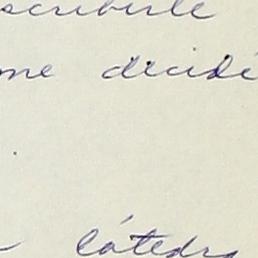 scribirle
me decidí
cátedra